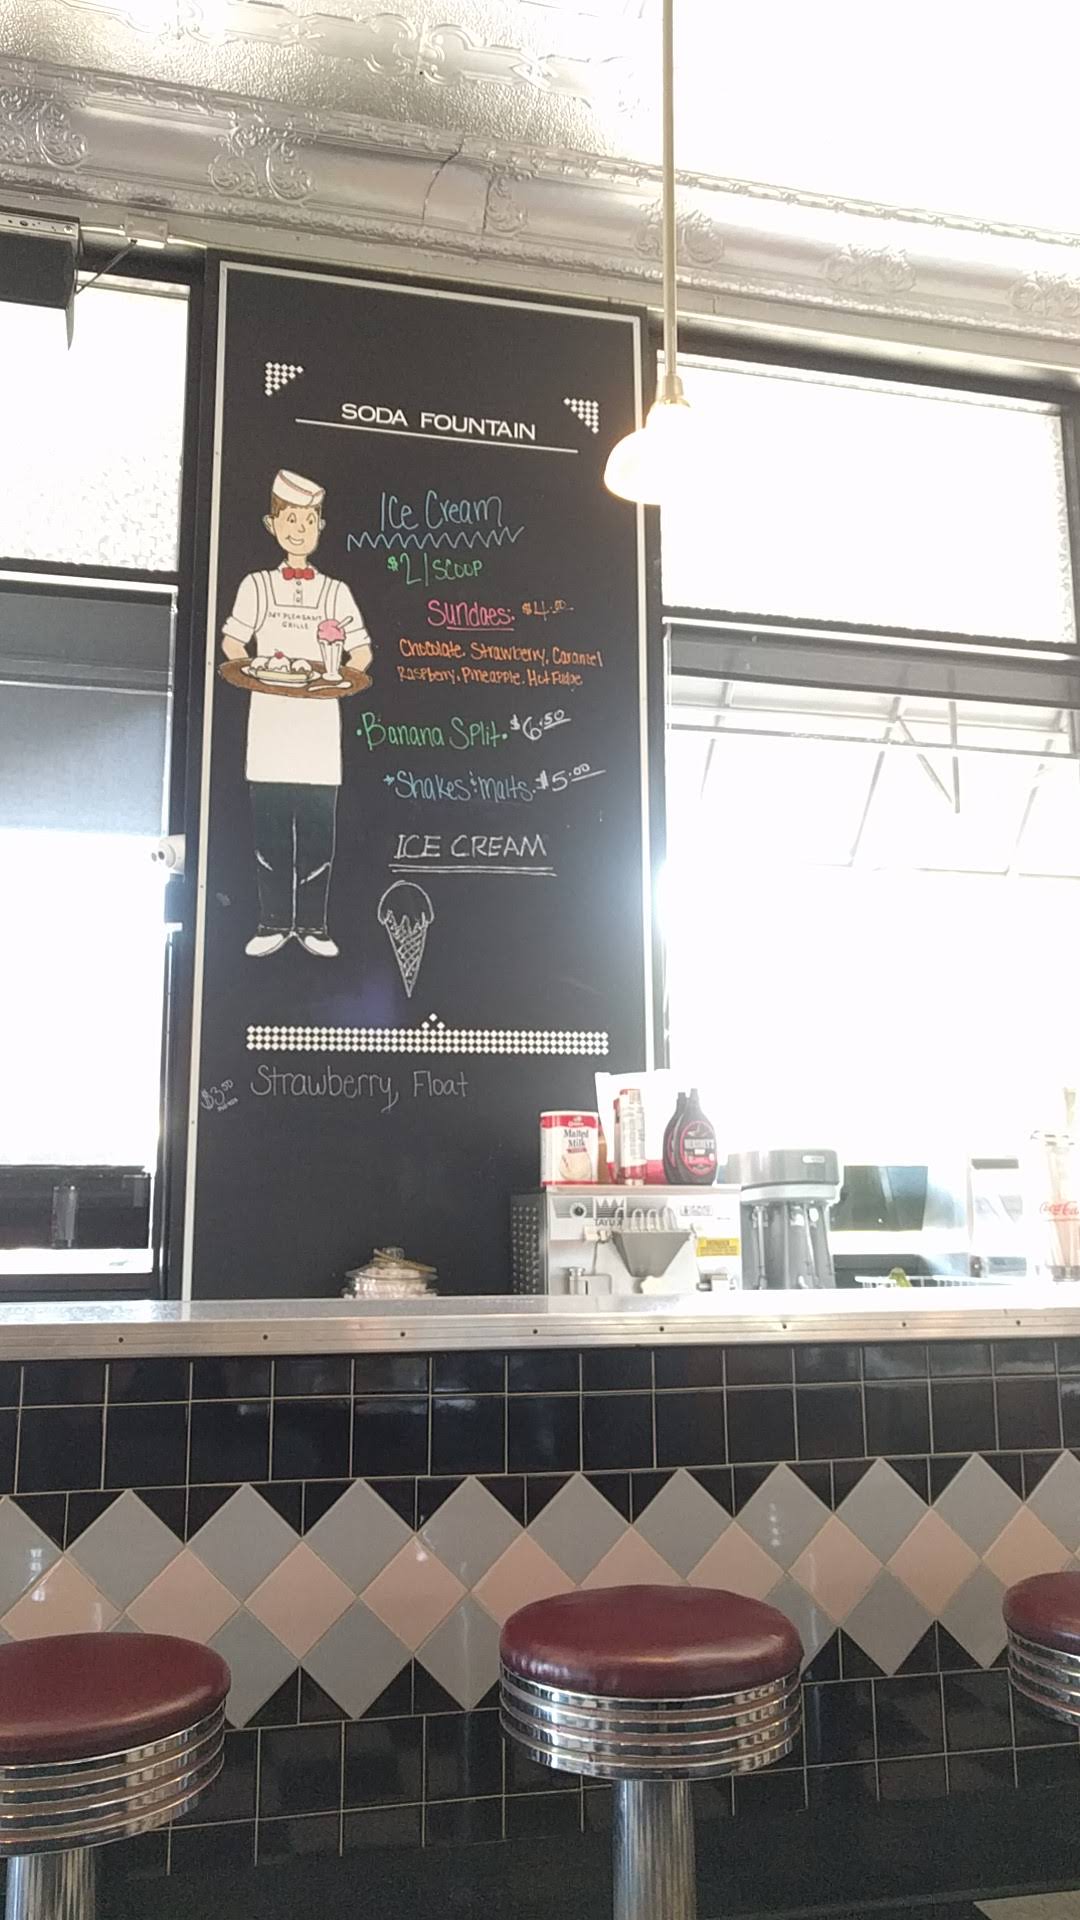 SODA FOUNTAIN
Ice Cream
$2/scoop
Sundaes: $4.00
Chocolate, Strawberry, Caramel
Raspberry, Pineapple, Hot Fudge
MT PLEASANT
GRILLE
•Banana Split. $6.50
*Shakes & malts. $5.00
ICE CREAM
$3.50
Strawberry Float
Malted
Milk
HERSHEY'S
TAYLOR
Coca-Cola